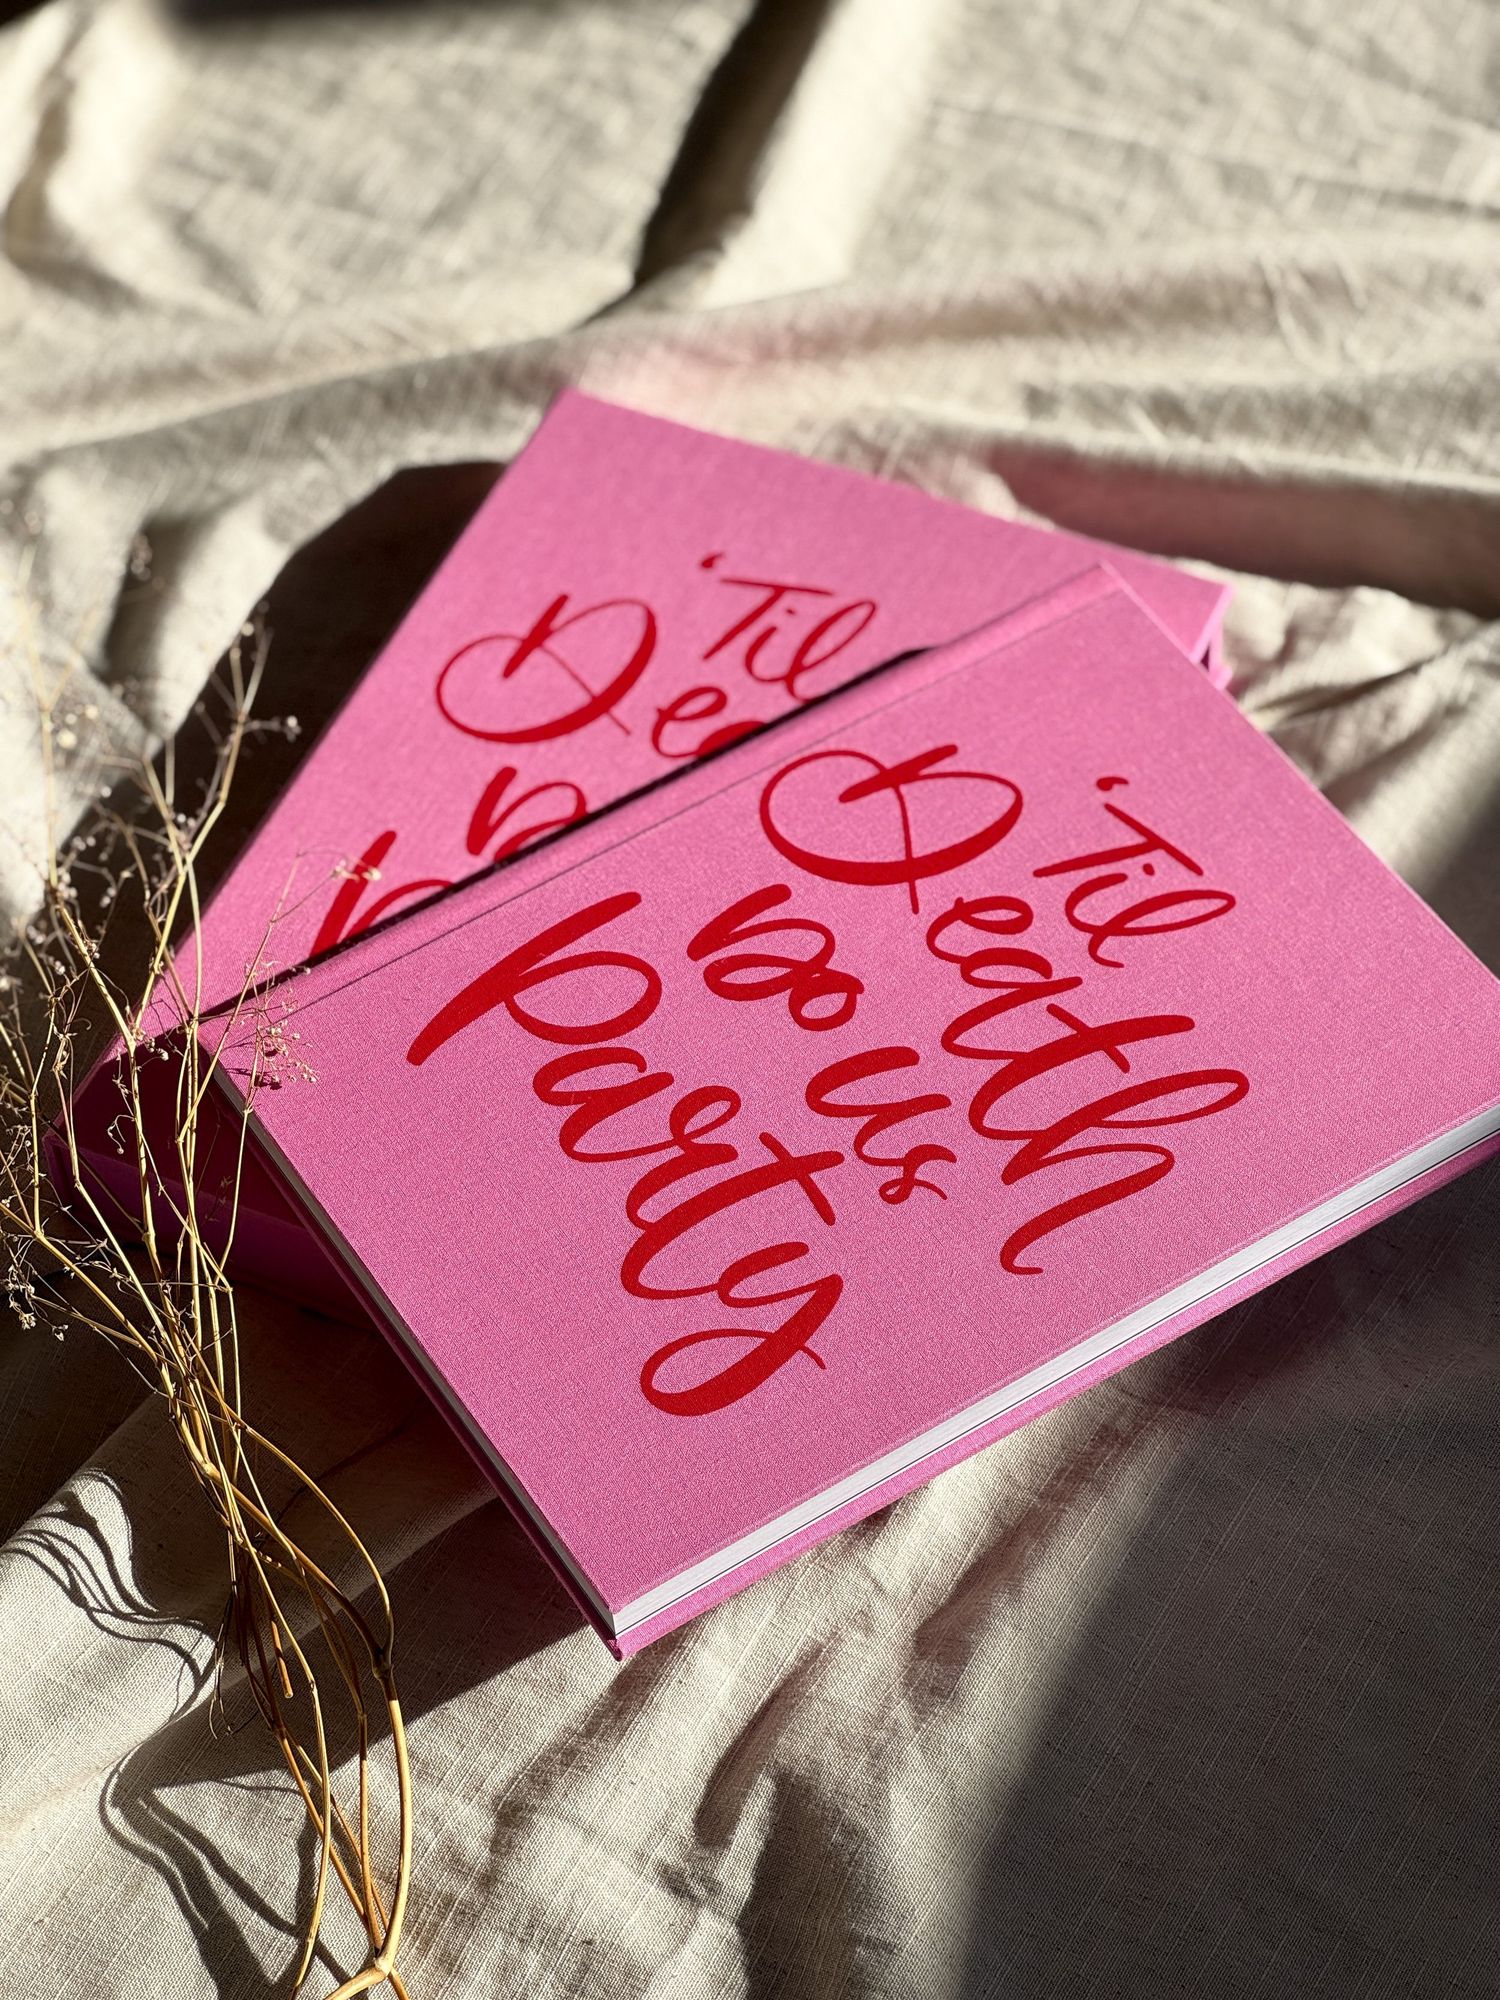 'Til
Dea
'Til
Death
do us
party